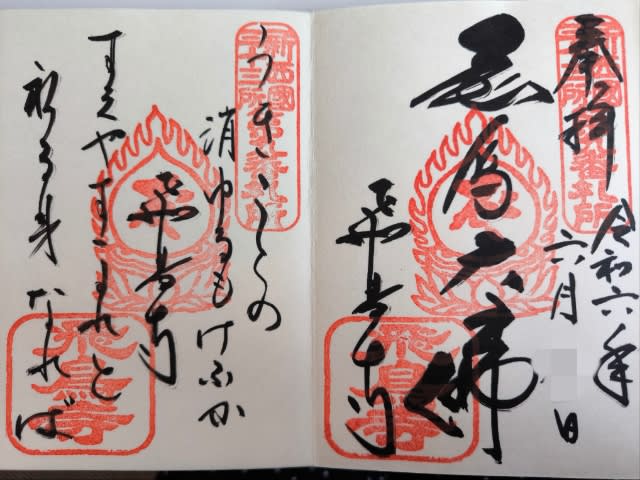 奉拝
令和六年
六月
日
飛鳥大佛
飛鳥寺
新西國
三十三所
第九番札所
飛鳥寺
うきことの
消ゆるもけふか
飛鳥寺
すえやすかれと
祈る身なれば
新西國
三十三所
第九番札所
飛鳥寺